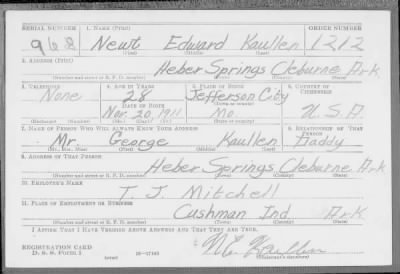 SERIAL NUMBER 1. NAME (Print) ORDER NUMBER
968 Newt Edward Kaullen 1212
(First) (Middle) (Last)
2. ADDRESS (Print)
Heber Springs Cleburne Ark
(Number and street or R. F. D. number) (Town) (County) (State)
3. TELEPHONE 4. AGE IN YEARS 5. PLACE OF BIRTH 6. COUNTRY OF CITIZENSHIP
None 28 Jefferson City
DATE OF BIRTH
Nov. 20, 1911 Mo. U.S.A.
(Exchange) (Number) (Mo.) (Day) (Yr.) (State or country)
7. NAME OF PERSON WHO WILL ALWAYS KNOW YOUR ADDRESS 8. RELATIONSHIP OF THAT PERSON
Mr. George Kaullen Daddy
(Mr., Mrs., Miss) (First) (Middle) (Last)
9. ADDRESS OF THAT PERSON
Heber Springs Cleburne Ark
(Number and street or R. F. D. number) (Town) (County) (State)
10. EMPLOYER'S NAME
T. J. Mitchell
11. PLACE OF EMPLOYMENT OR BUSINESS
Cushman Ind Ark
(Number and street or R. F. D. number) (Town) (County) (State)
I AFFIRM THAT I HAVE VERIFIED ABOVE ANSWERS AND THAT THEY ARE TRUE.
REGISTRATION CARD
D. S. S. Form 1 16—17105 N E Kaullen
(over) (Registrant's signature)